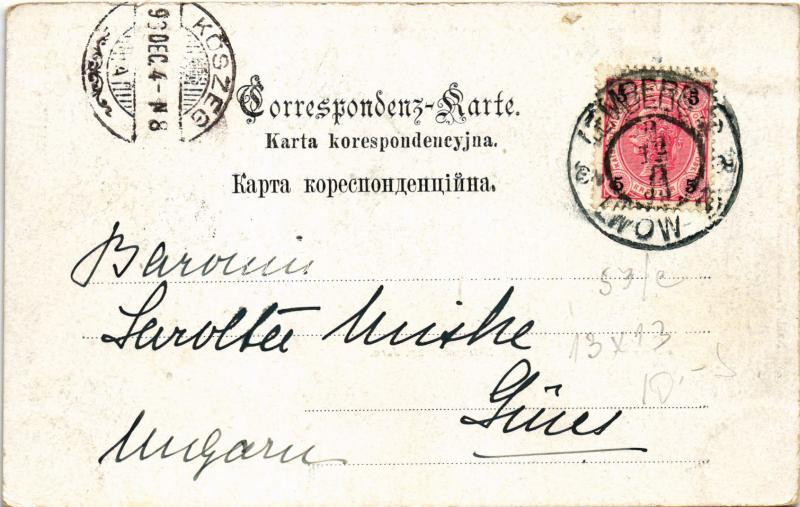 KÖSZEG
DEC. 4
Correspondenz-Karte.
Karta korespondencyjna.
Карта кореспонденційна.
LEMBERG
LWÓW
5 5
5 5
Baronin
Sarolta Miske
Güns
Ungarn
53/c
13x13
10.-